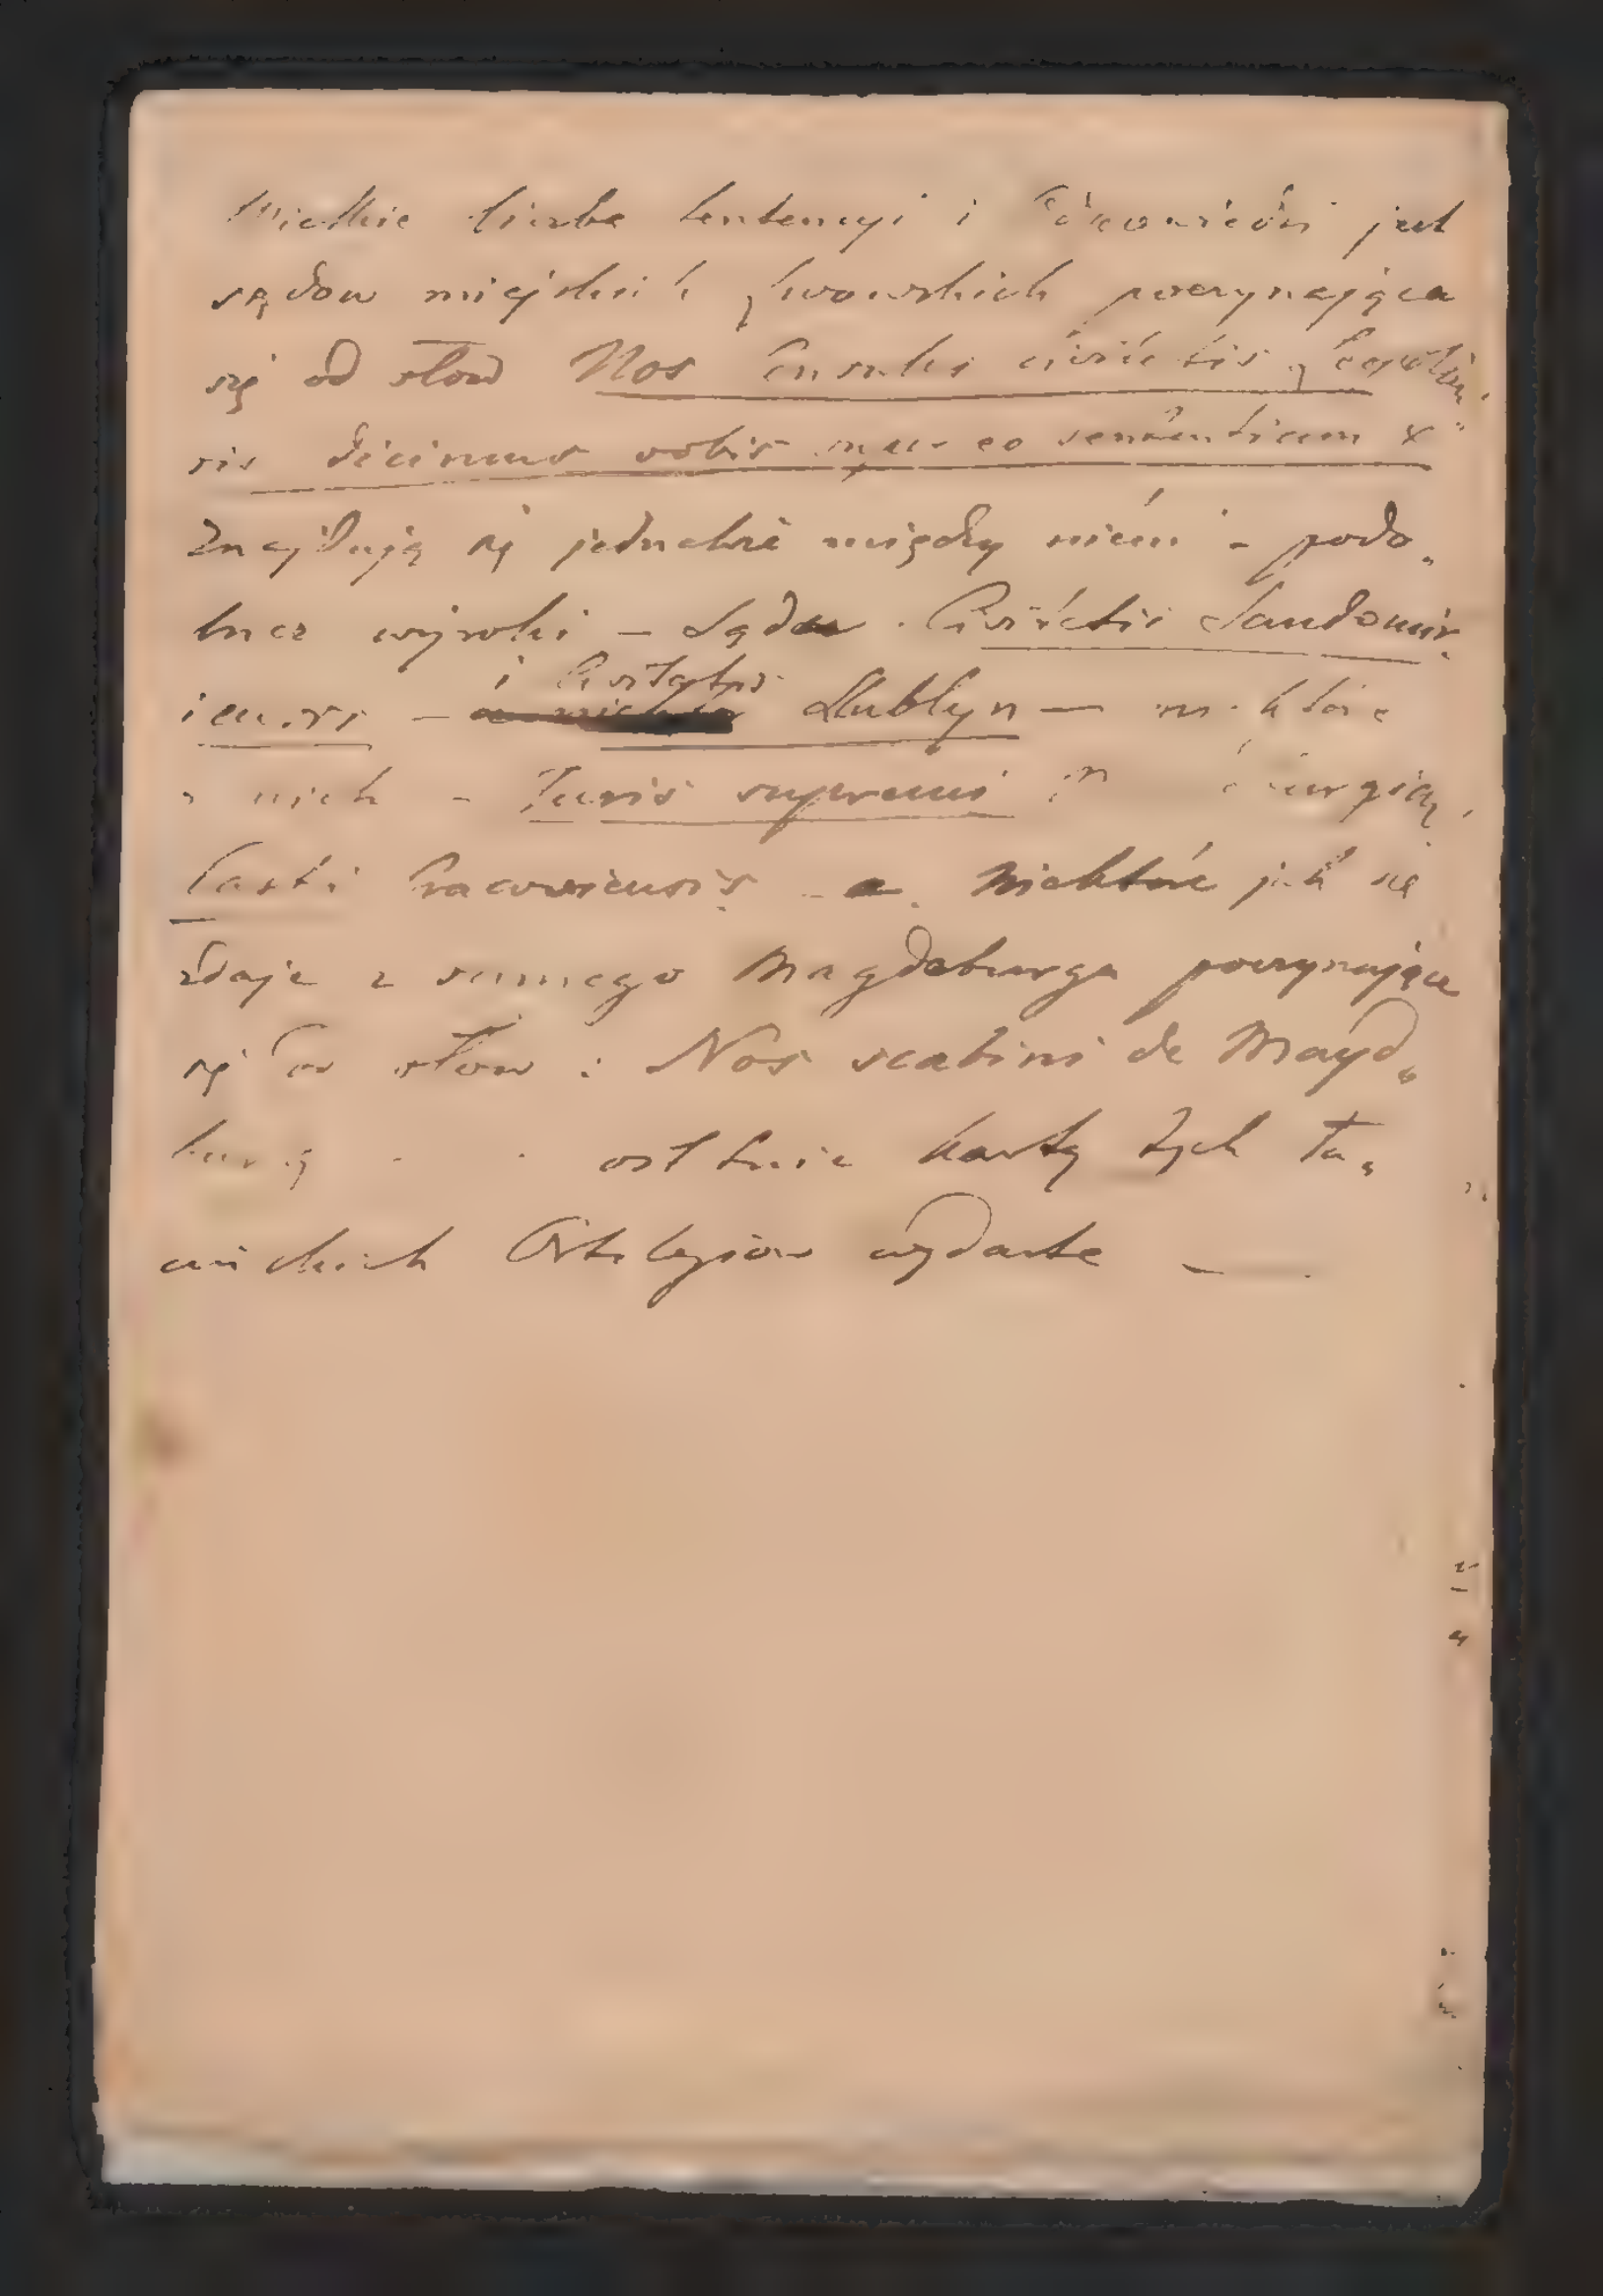 Wielkie liczba sentencyi i jest
sądow miejskich Lwowskich poczynająca
się od słow Nos Consules civitatis Leopolien„
sis dicimus vobis pro eo sententiam x
Znajdują się jednakże między niemi – podo„
bnez wyroki – Sądu Civitatis Sandomir„
iensis – i Civitatis Lublyn –
nich – Juris supremi
Castri Cracoviensis – a niektóre jak się
zdaje z samego Magdeburga poczynające
się od słow : Nos scabini de Mayd„
burg ostatnie karty tych ła„
cińskich Ortylegiow wydarte —